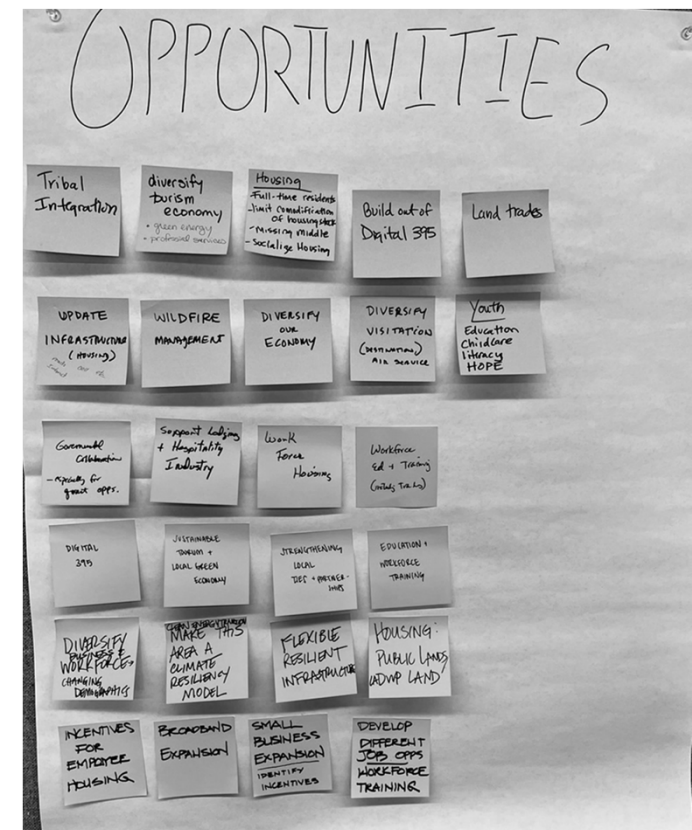 OPPORTUNITIES
Tribal
Integration
diversify
tourism
economy
• green energy
• professional services
Housing
- Full-time residents
- limit comodification
of housing stock
- Missing middle
- Socialize Housing
Build out of
Digital 395
Land trades
UPDATE
INFRASTRUCTURE
(HOUSING)
WILDFIRE
MANAGEMENT
DIVERSIFY
OUR
ECONOMY
DIVERSIFY
VISITATION
(DESTINATION)
AIR SERVICE
Youth
Education
Childcare
literacy
HOPE
Governmental
Collaboration
- especially for
grant opps.
Support Lodging
+ Hospitality
Industry
Work
Force
Housing
Workforce
Ed + Training
DIGITAL
395
SUSTAINABLE
TOURISM +
LOCAL GREEN
ECONOMY
STRENGTHENING
LOCAL
TIES + PARTNER-
SHIPS
EDUCATION +
WORKFORCE
TRAINING
DIVERSIFY
BUSINESS &
WORKFORCE
CHANGING
DEMOGRAPHICS
CLEAN ENERGY TRANSITION
MAKE THIS
AREA A
CLIMATE
RESILIENCY
MODEL
FLEXIBLE
RESILIENT
INFRASTRUCTURE
HOUSING:
PUBLIC LANDS
LADWP LAND
INCENTIVES
FOR
EMPLOYEE
HOUSING
BROADBAND
EXPANSION
SMALL
BUSINESS
EXPANSION
IDENTIFY
INCENTIVES
DEVELOP
DIFFERENT
JOB OPPS
WORKFORCE
TRAINING